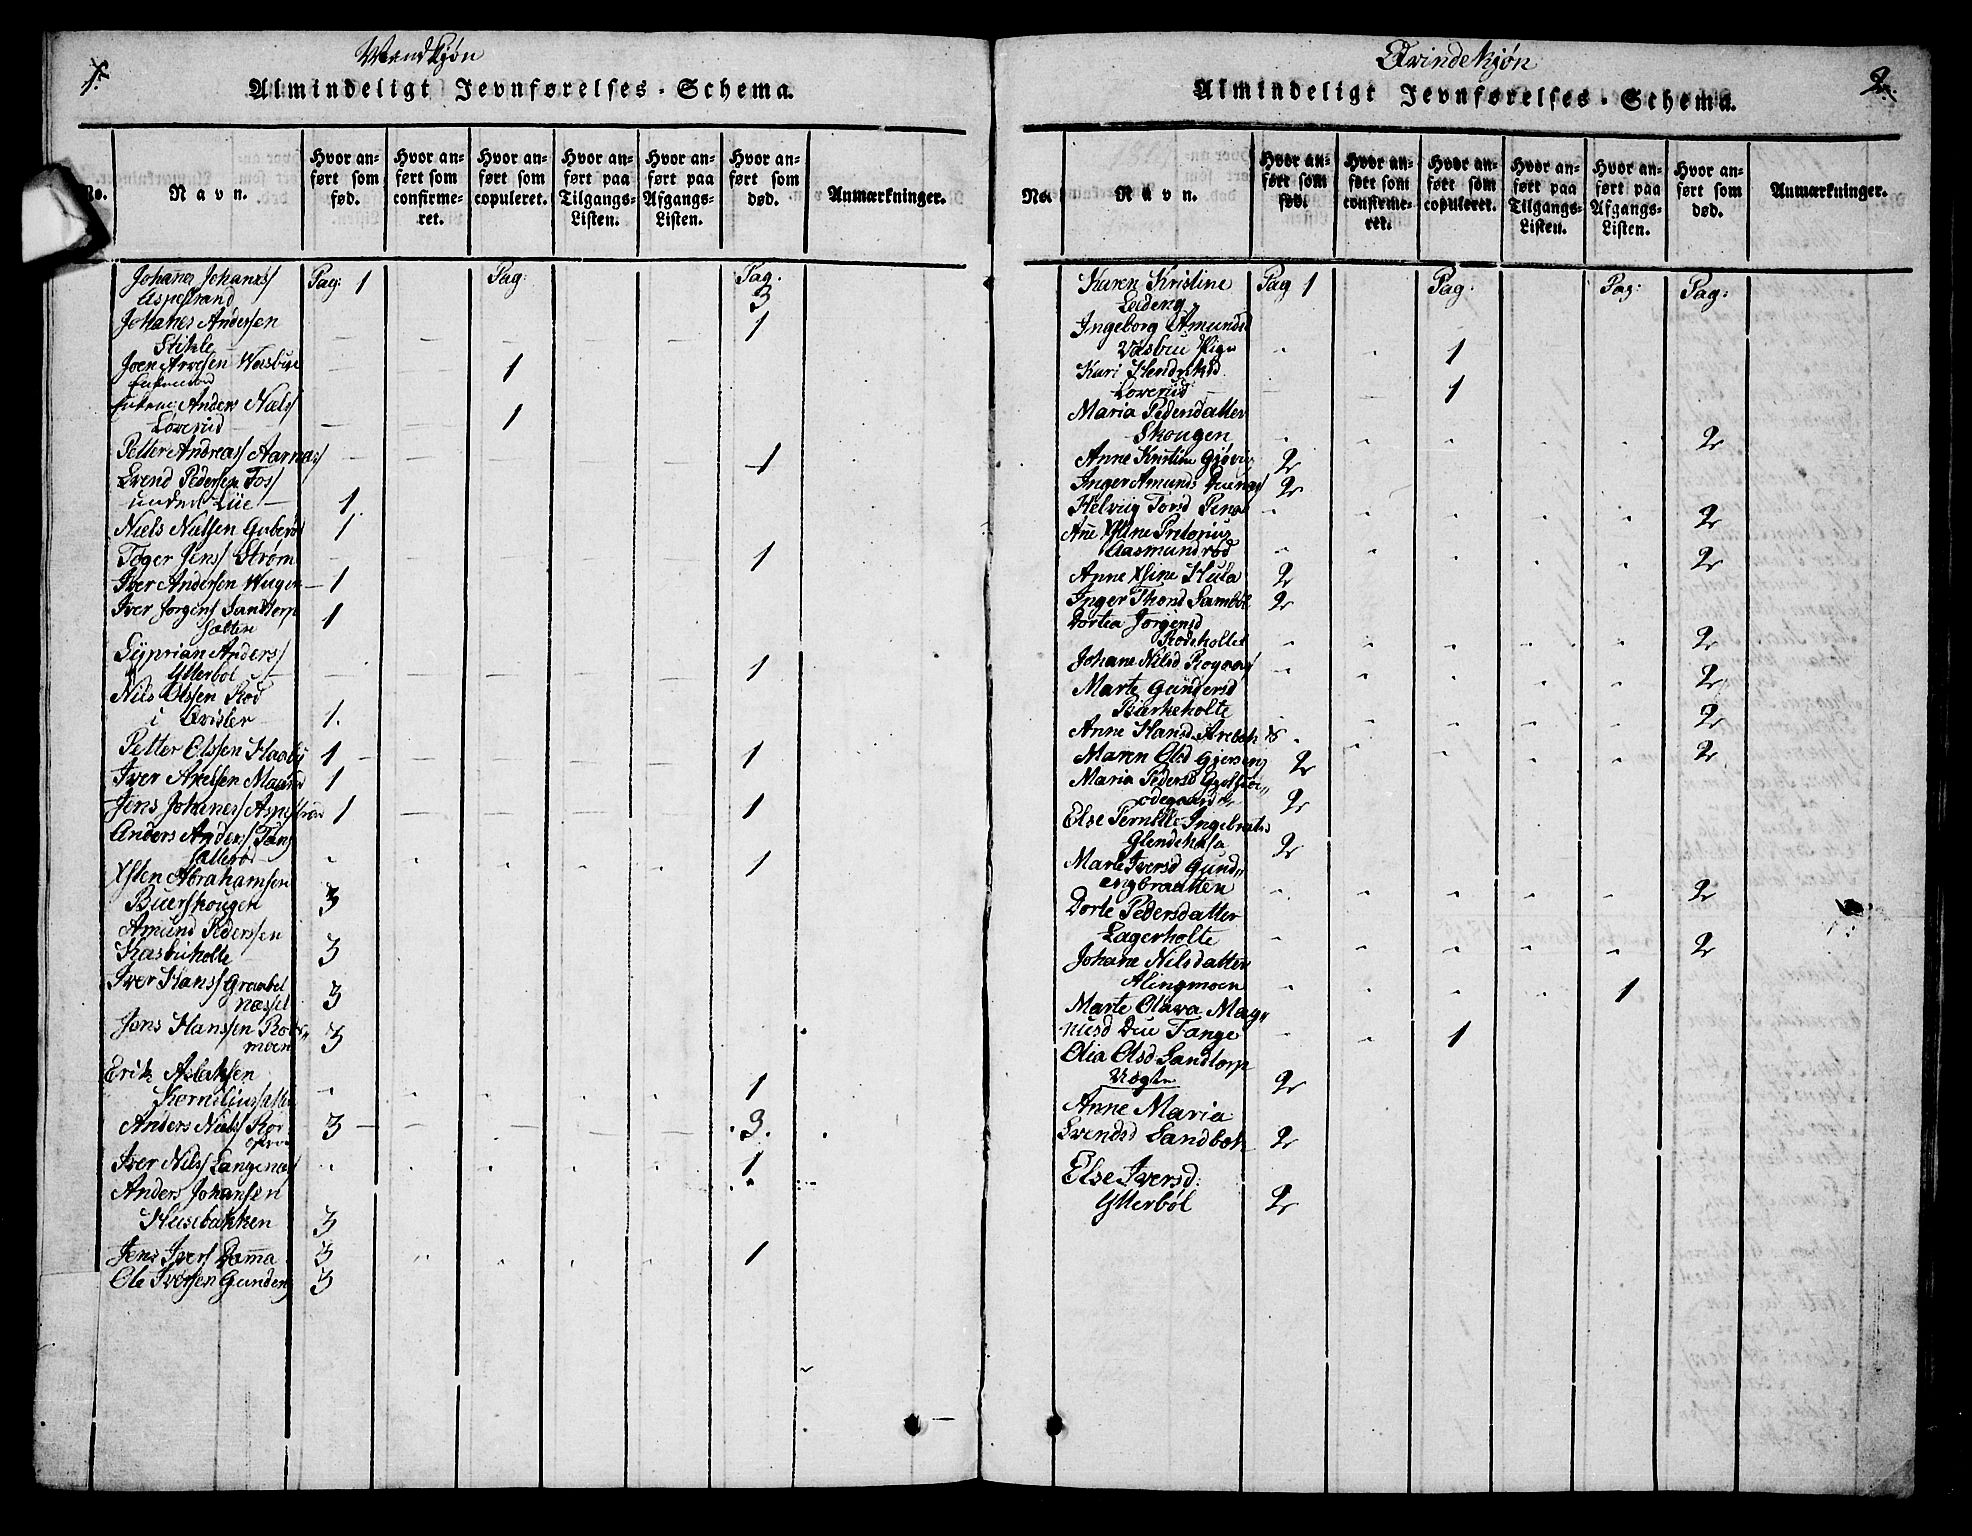 1.
Mandkjøn
Almindeligt Jevnførelses-Schema.
No.
Navn.
Hvor anført som fød.
Hvor anført som confirmeret.
Hvor anført som copuleret.
Hvor anført paa Tilgangs-Listen.
Hvor anført paa Afgangs-Listen.
Hvor anført som død.
Anmærkninger.
Johannes Johaness/ Pag: 1 Pag: Pag.
Aspestrand 3
Johanes Andersen 1
Stikle
Joen Arvesen Wasbye 1
Enkemand
Enkem: Anders Næls/
Løverud 1
Petter Andreas/ Aarnæs/ 1
Svend Pedersen Fos/
under Lie 1.
Niels Nielsen 1
Tøger Jens/ Strøm 1
Iver Andersen Wugen 1
Iver Jørgens/ Sandtorp 1
Sætten
Cyprian Anders/
Ytterbøl 1
Nils Olssen Rød
i Qvisler 1.
Petter Olssen Haaby 1 1
Iver Arvesen 1
Jens Johanes/ Aspestrand 1 1
Anders Anders/ Tang
Sællerød 1
Xsten Abrahamsen
Buerskougen 3
Amund Pederssen
Kasbuholte 3
Iver Hans/ Graabøl
næsset 3
Jens Hanssen Rods„
moen 3
Erik Aslaksen
Korneliussætten 1
Anders Niels/ Rør 3 3.
Iver Nils/ Langenæs/ 1
Anders Johansen
Husebakken 3
Jens Ivers/ Damma 3 1
Ole Iversen Gundeng 3
2.
Qvindekjøn
Almindeligt Jevnførelses-Schema.
No.
Navn.
Hvor anført som fød.
Hvor anført som confirmeret.
Hvor anført som copuleret.
Hvor anført paa Tilgangs-Listen.
Hvor anført paa Afgangs-Listen.
Hvor anført som død.
Anmærkninger.
Karen Kristine Pag 1 Pag: Pag: Pag:
Ledeng
Ingeborg Amundsd
Vasbu Pige 1
Kari Hendriksd
Løverud 1
Maria Pedersdatter
Skougen 2
Anne Kristine 2
Inger Amunds 2
Helviig Torsd 2
Ane Xstne Pretorius
Aasmundrød 2
Anne Xstine Hula 2
Inger Thorsd Sambøl 2
Dortea Jørgensd
Rødsholtet 2
Johane Nilsd 2
Marte Gundersd
Birkeholte 2
Anne Hansd Arebek 2
Maren Olsd 2
Maria Pedersd
ødegaard 2
Else Pernille Ingebrets
Glendehasa 2
Marte Iversd Gund„
engbraatten 2
Dorte Pedersdatter
Lagerholte 2
Johane Nilsdatter
Alingmoen 1
Marte Olava Mag„
nusd Due Tange 1
Olia Olsd Sandtorp
Uægte 2
Anne Maria
Svendsd Sandbek 2
Else Iversd:
Ytterbøl 2